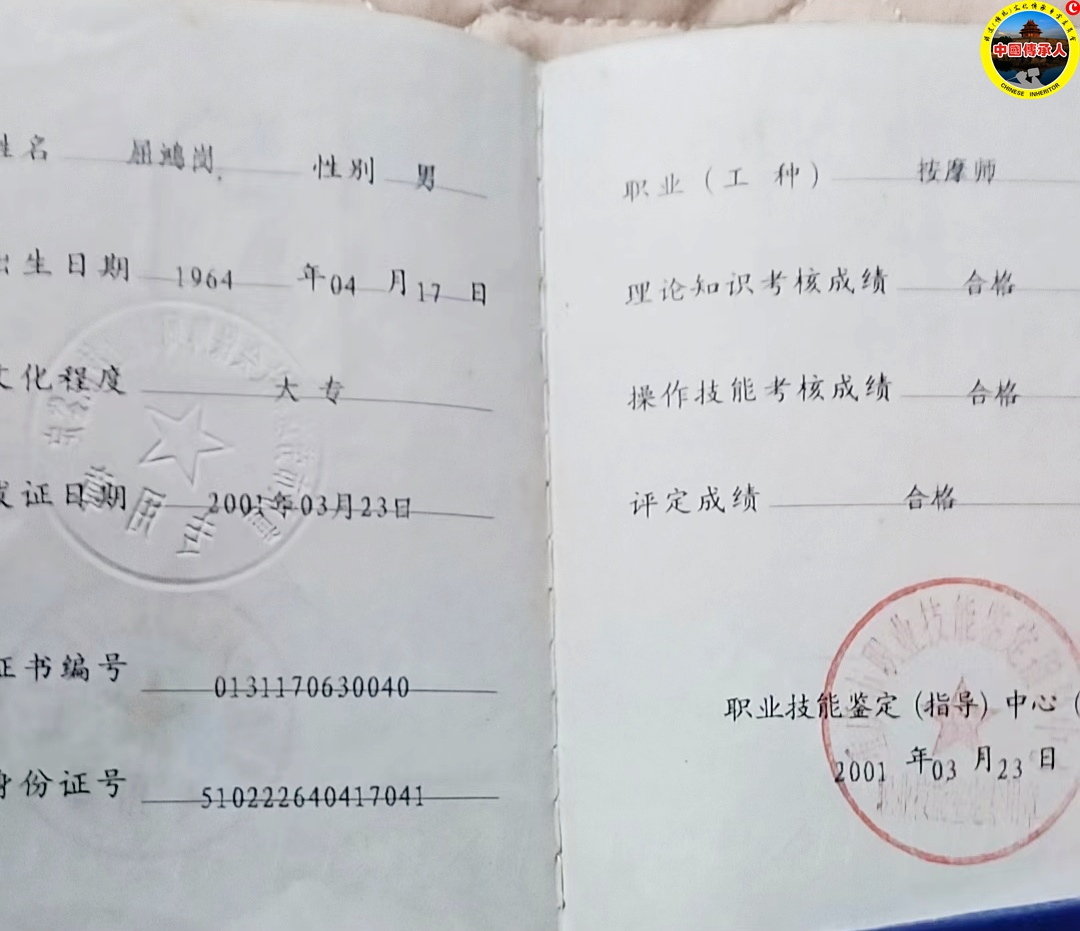 姓名 屈鸿岗 性别 男
出生日期 1964 年04 月17 日
文化程度 大专
发证日期 2001年03月23日
证书编号 0131170630040
身份证号 510222640417041
职业(工 种) 按摩师
理论知识考核成绩 合格
操作技能考核成绩 合格
评定成绩 合格
职业技能鉴定(指导)中心(
2001 年03 月23 日
职业技能鉴定
专用章
中國傳承人
CHINESE INHERITOR